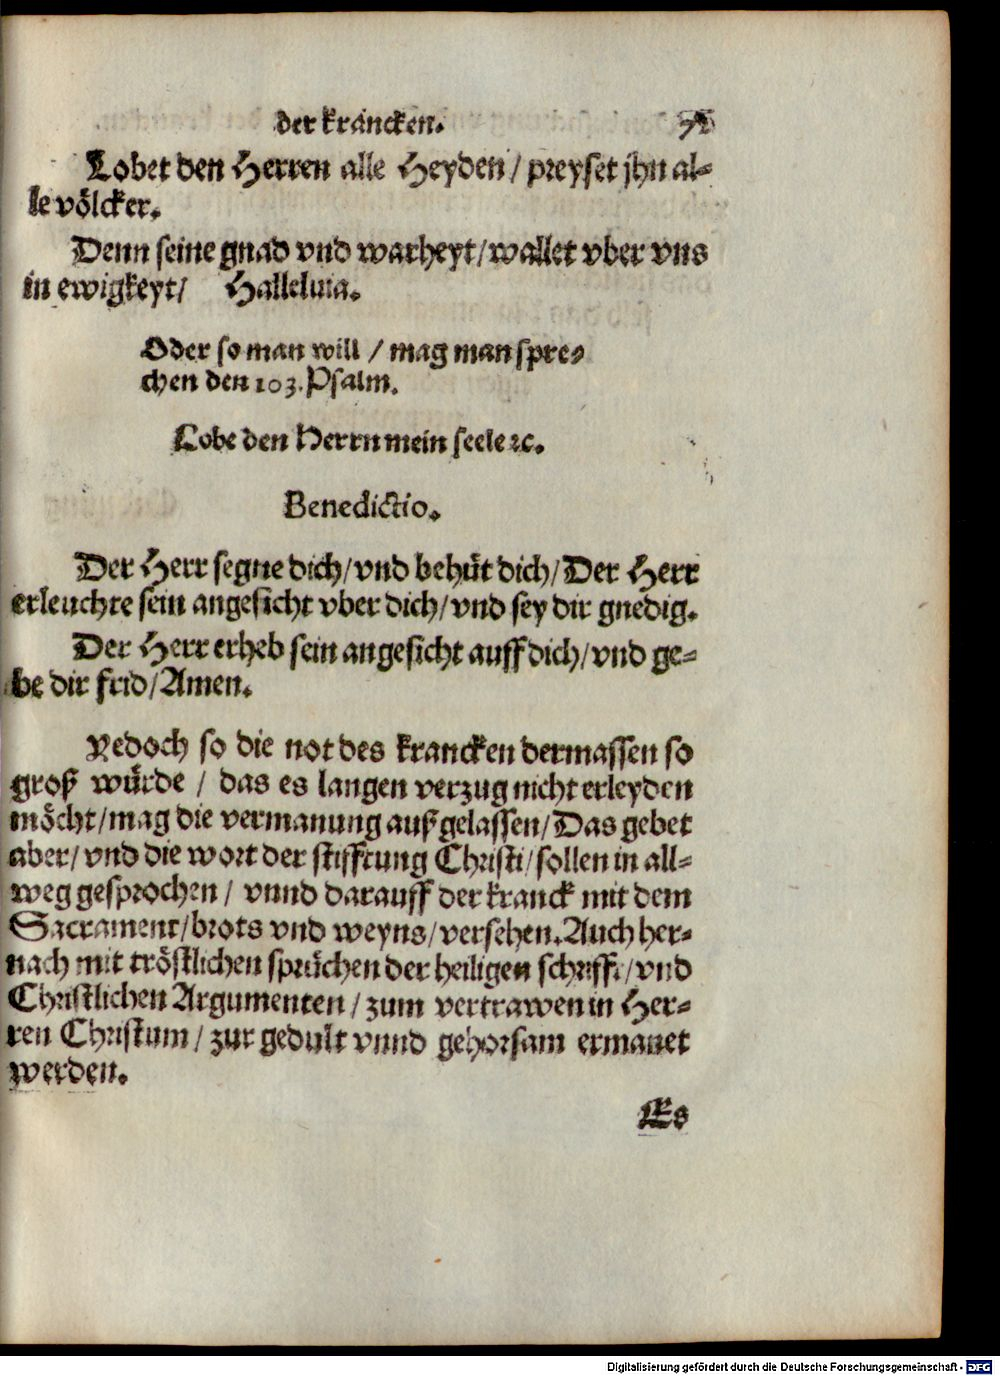 der krancken.
Lobet den Herren alle Heyden / preyset jhn al-
le völcker.
Denn seine gnad vnd warheyt/wallet vber vns
in ewigkeyt/ Halleluia.
Oder so man will / mag man spre-
chen den 103. Psalm.
Lobe den Herrn mein seele ꝛc.
Benedictio.
Der Herr segne dich/vnd behüt dich/Der Herr
erleuchte sein angesicht vber dich/vnd sey dir gnedig.
Der Herr erheb sein angesicht auff dich/vnd ge-
be dir frid/Amen.
Yedoch so die not des krancken dermassen so
groß würde / das es langen verzug nicht erleyden
möcht/mag die vermanung außgelassen/Das gebet
aber/vnd die wort der stifftung Christi/sollen in all-
weg gesprochen / vnnd darauff der kranck mit dem
Sacrament/brots vnd weyns/versehen. Auch her-
nach mit tröstlichen sprüchen der heiligen schrifft/vnd
Christlichen Argumenten / zum vertrawen in Her-
ren Christum / zur gedult vnnd gehorsam ermanet
werden.
Es
Digitalisierung gefördert durch die Deutsche Forschungsgemeinschaft - DFG